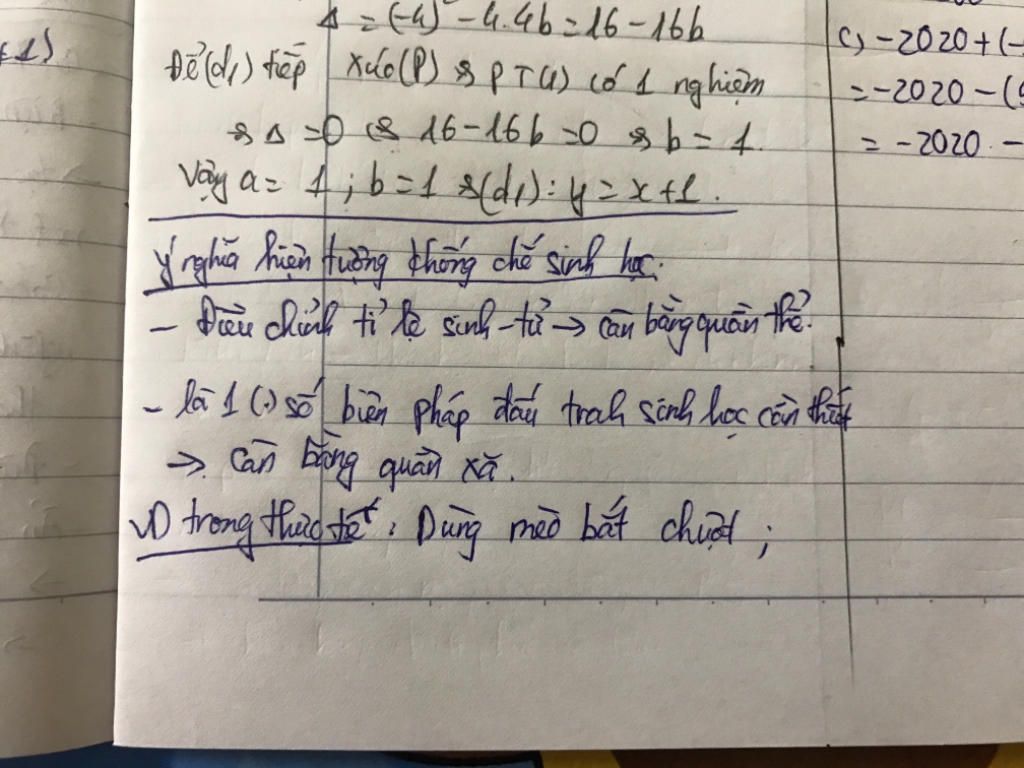 +1)
Δ = (-4)² - 4.4b = 16 - 16b
Để (d₁) tiếp xúc (P) ⇔ PT(1) có 1 nghiệm
⇔ Δ = 0 ⇔ 16 - 16b = 0 ⇔ b = 1.
Vậy a = 1 ; b = 1 ⇔ (d₁) : y = x + 1.
Ý nghĩa hiện tượng khống chế sinh học.
- Điều chỉnh tỉ lệ sinh - tử → cân bằng quần thể.
- là 1 (.) số biện pháp đấu tranh sinh học cần thiết
→ cân bằng quần xã.
VD trong thực tế : Dùng mèo bắt chuột ;
c) -2020 + (-
= -2020 - (
= -2020 -